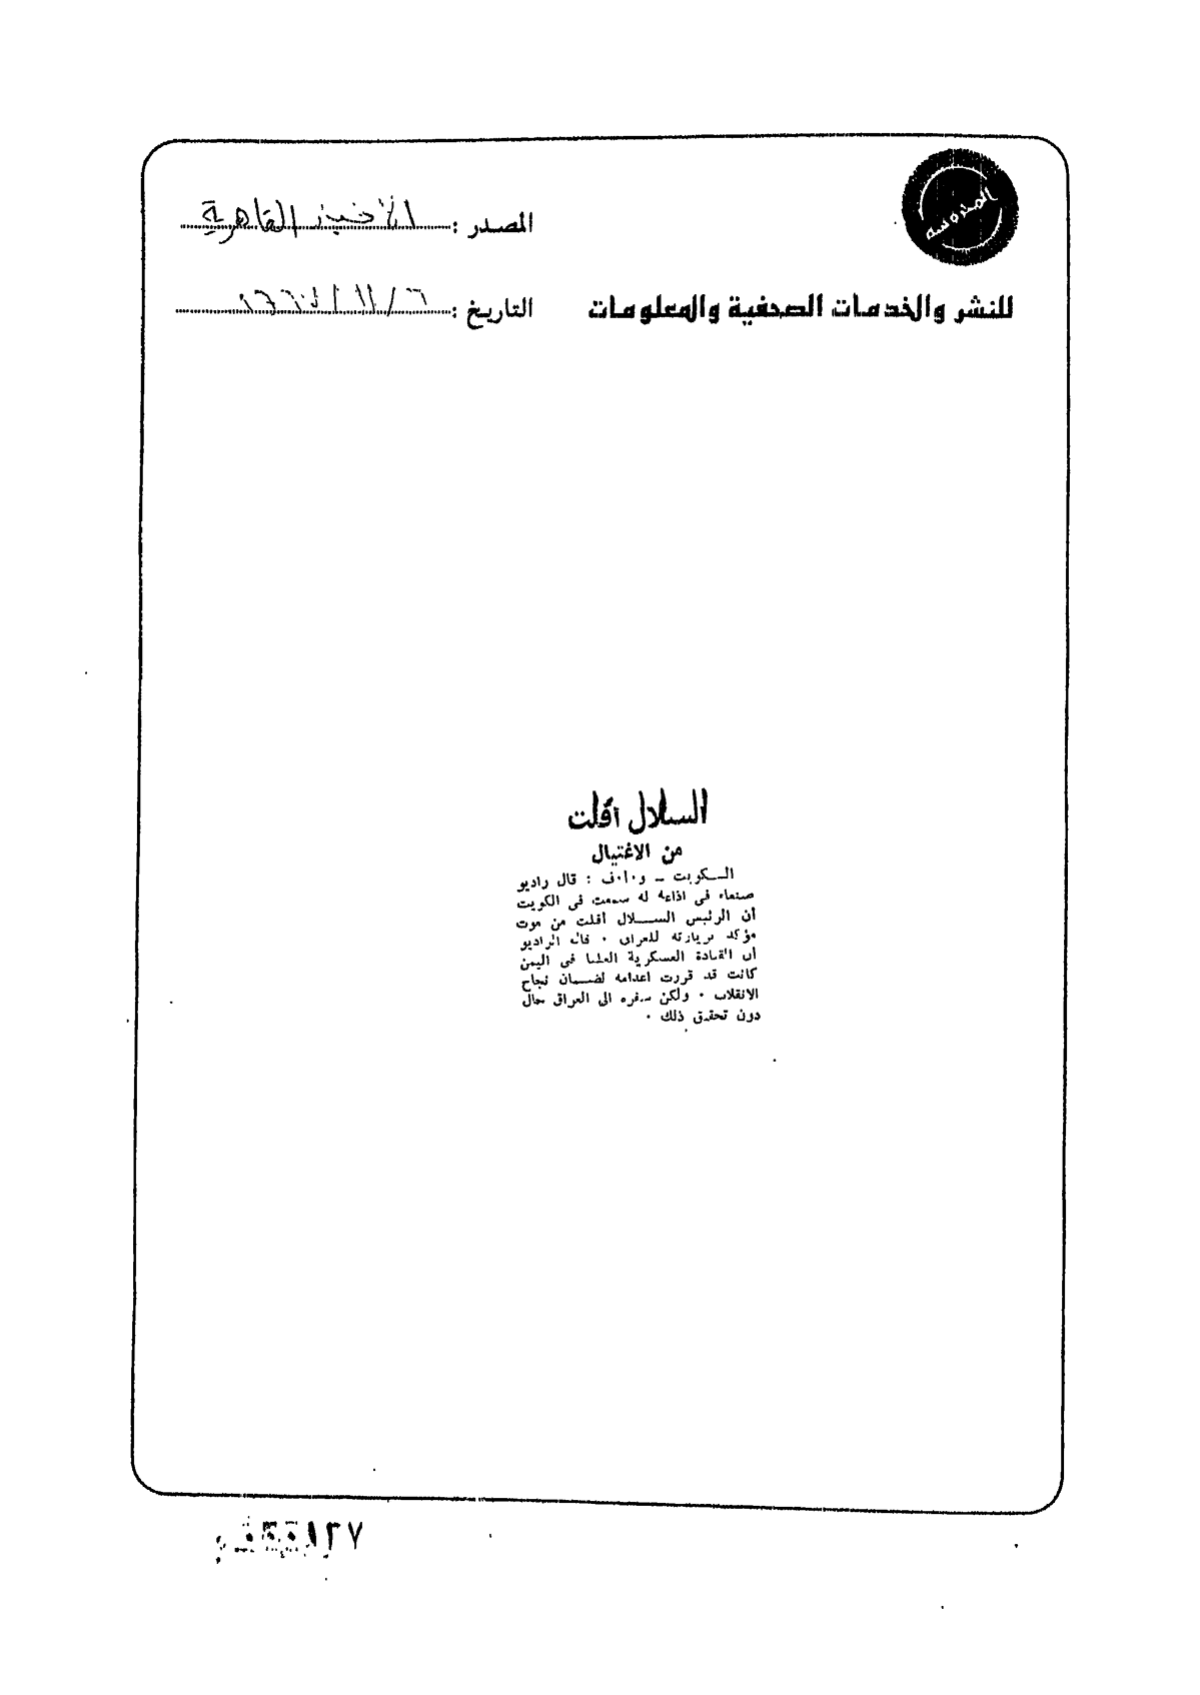 المصدر : الأخبار القاهرية
للنشر والخدمات الصحفية والمعلومات
التاريخ : ٦ / ١١ /
السلال أفلت
من الاغتيال
السكويت - و٠ا٠ف : قال راديو
صنعاء فى اذاعة له سمعت فى الكويت
أن الرئيس السلال أفلت من موت
مؤكد بزيارته للعراق ٠ قال الراديو
أن القيادة العسكرية العليا فى اليمن
كانت قد قررت اعدامه لضمان نجاح
الانقلاب ٠ ولكن سفره الى العراق حال
دون تحقيق ذلك ٠